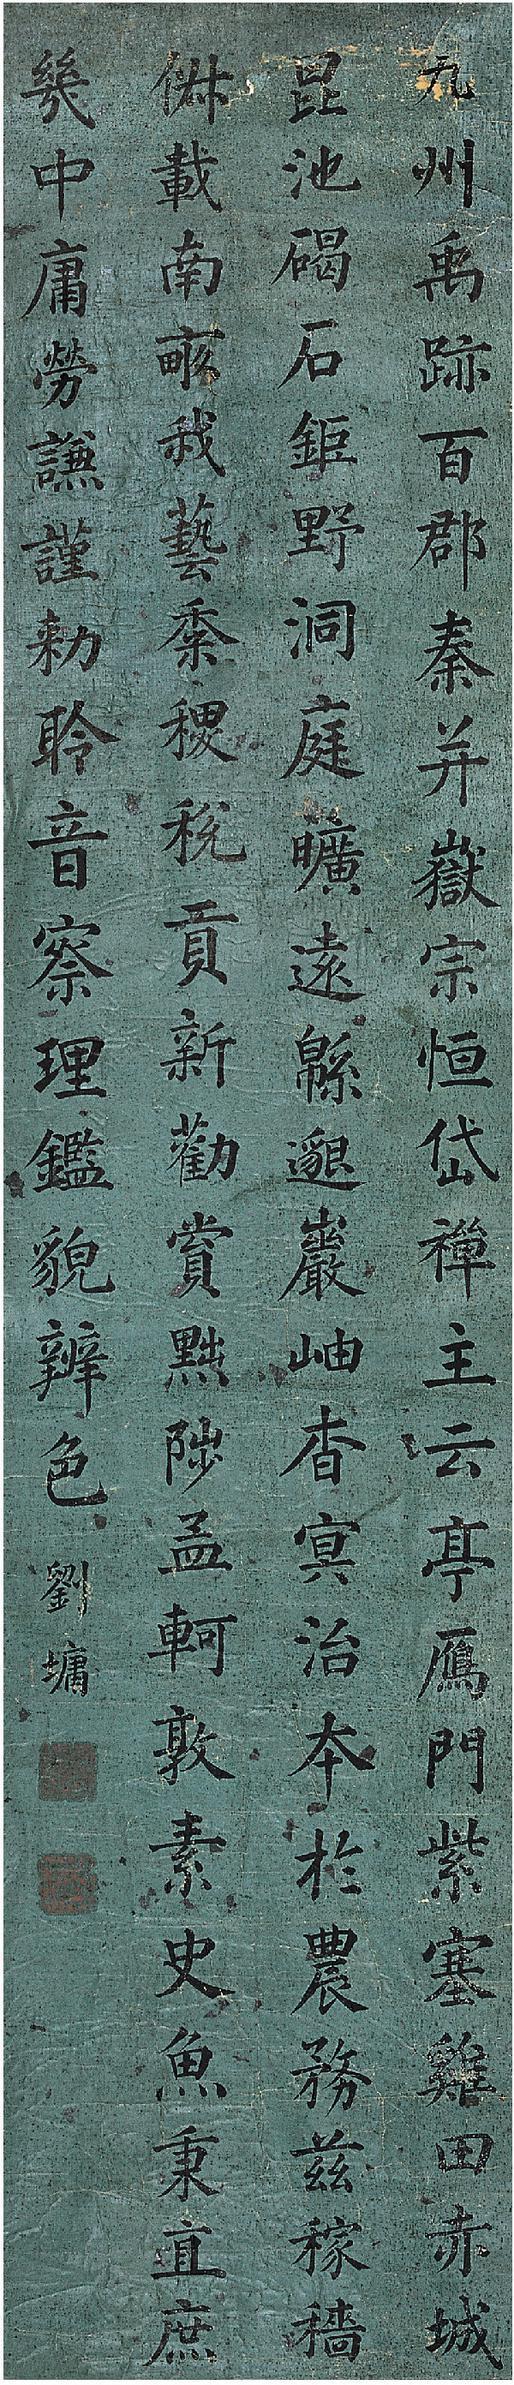 九州禹跡百郡秦并嶽宗恒岱禪主云亭鴈門紫塞雞田赤城
昆池碣石鉅野洞庭曠遠緜邈巖岫杳冥治本於農務茲稼穡
俶載南畝我藝黍稷稅貢新勸賞黜陟孟軻敦素史魚秉直庶
幾中庸勞謙謹勅聆音察理鑑貌辨色
劉墉